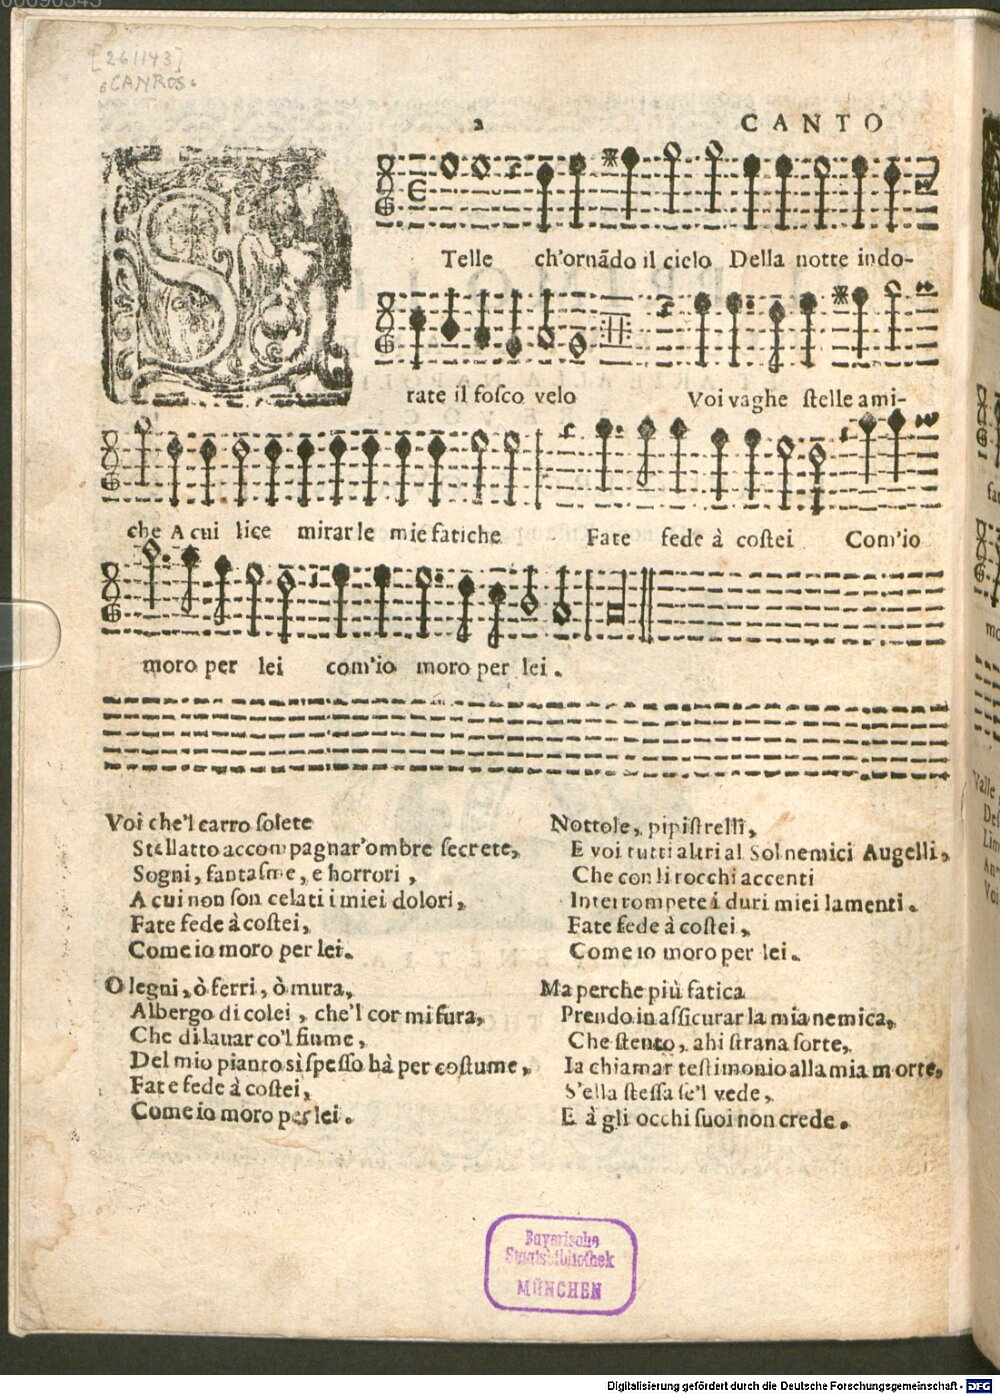 00090343
[261143]
CANROS
2 CANTO
S
Telle ch'ornãdo il cielo Della notte indo-
rate il fosco velo Voi vaghe stelle ami-
che A cui lice mirar le mie fatiche Fate fede à costei Com'io
moro per lei com'io moro per lei.
Voi che'l carro solete
Stellatto accompagnar'ombre secrete,
Sogni, fantasme, e horrori,
A cui non son celati i miei dolori,
Fate fede à costei,
Come io moro per lei.
O legni, ò ferri, ò mura,
Albergo di colei, che'l cor mi fura,
Che di lauar co'l fiume,
Del mio pianto sì spesso hà per costume,
Fate fede à costei,
Come io moro per lei.
Nottole, pipistrelli,
E voi tutti altri al Sol nemici Augelli,
Che con li rocchi accenti
Interrompete i duri miei lamenti.
Fate fede à costei,
Come io moro per lei.
Ma perche più fatica
Prendo in assicurar la mia nemica,
Che stento, ahi strana sorte,
Ia chiamar testimonio alla mia morte,
S'ella stessa se'l vede,
E à gli occhi suoi non crede.
Bayerische
Staatsbibliothek
MÜNCHEN
Digitalisierung gefördert durch die Deutsche Forschungsgemeinschaft - DFG